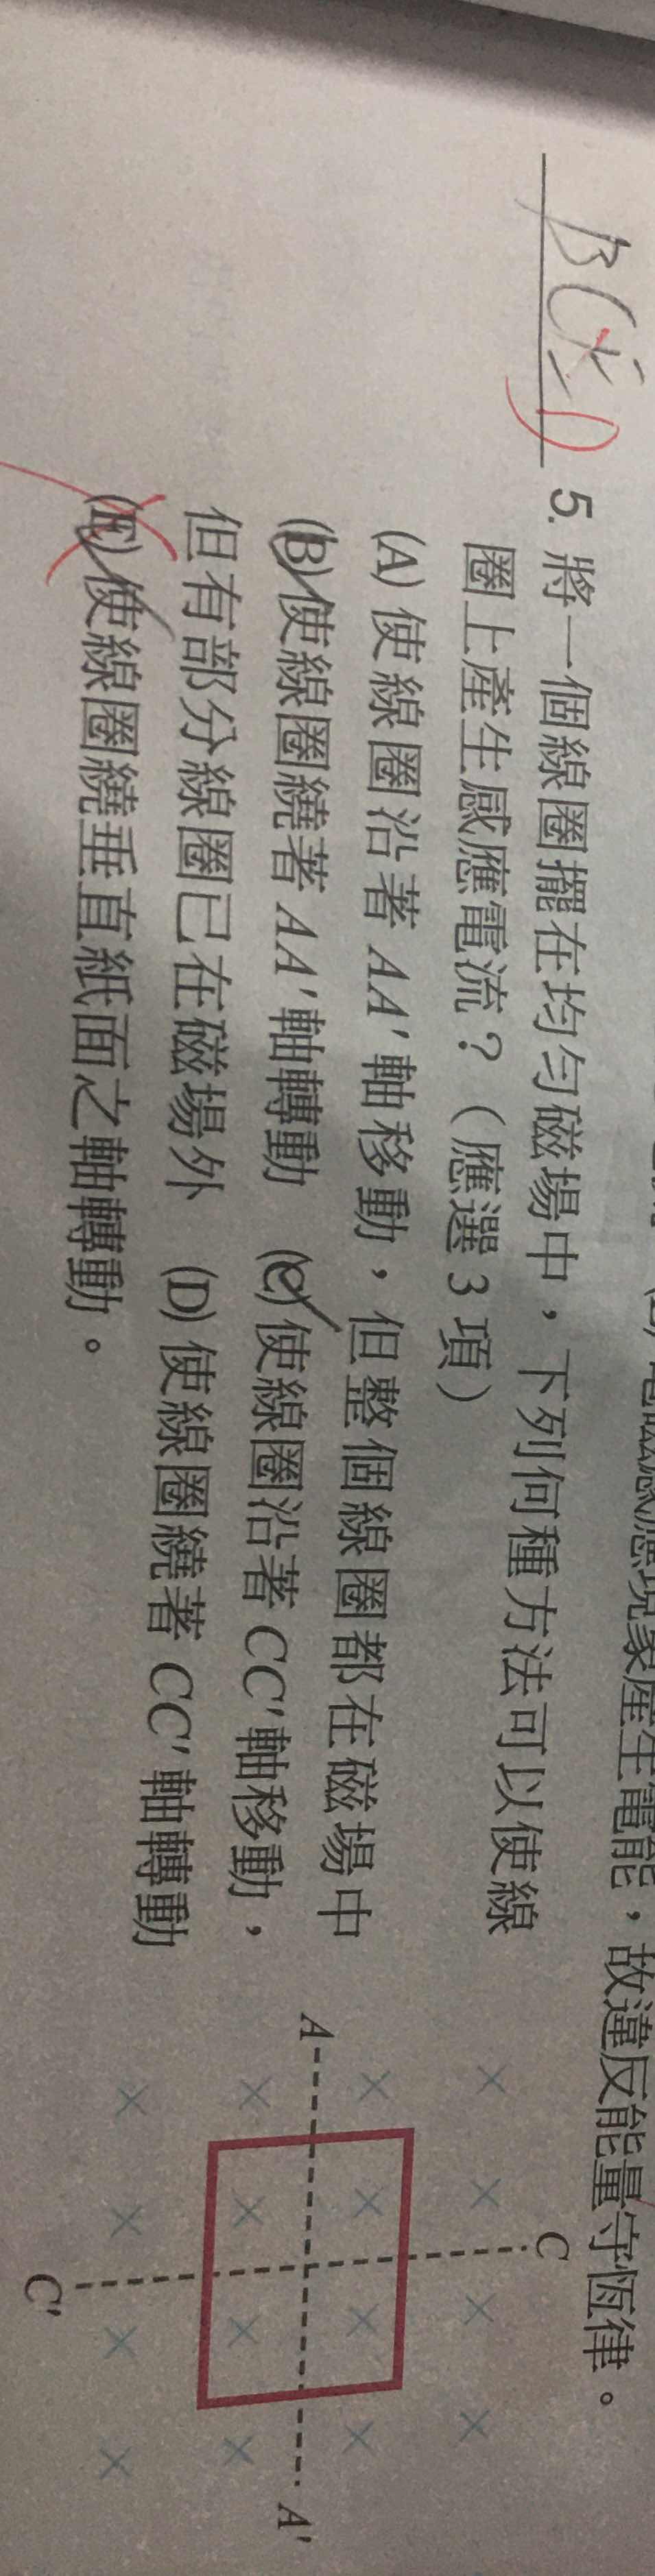 故違反能量守恆律。
BCD
5. 將一個線圈擺在均勻磁場中，下列何種方法可以使線
圈上產生感應電流？（應選3項）
(A) 使線圈沿著 AA' 軸移動，但整個線圈都在磁場中
(B) 使線圈繞著 AA' 軸轉動 (C) 使線圈沿著 CC' 軸移動，
但有部分線圈已在磁場外 (D) 使線圈繞著 CC' 軸轉動
(E) 使線圈繞垂直紙面之軸轉動。
C
A
A'
C'